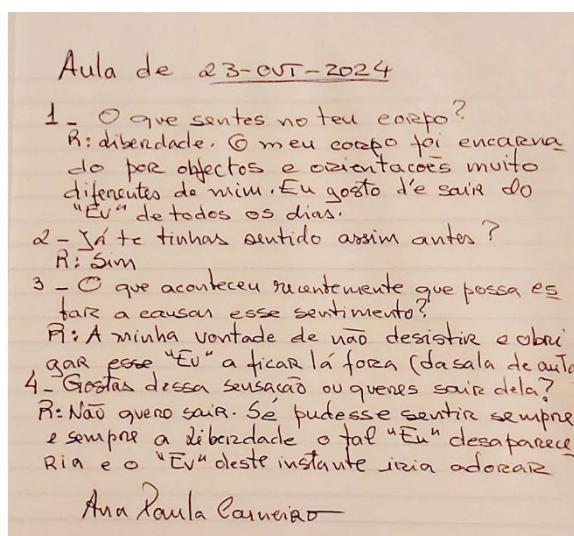 Aula de 23-OUT-2024
1- O que sentes no teu corpo?
R: Liberdade. O meu corpo foi encarna
do por objectos e orientacões muito
diferentes de mim. Eu gosto d'e sair do
"Eu" de todos os dias.
2- Já te tinhas sentido assim antes?
R: Sim
3- O que aconteceu recentemente que possa es
tar a causar esse sentimento?
R: A minha vontade de não desistir e obri
gar esse "Eu" a ficar lá fora (da sala de aula
4- Gostas dessa sensação ou queres sair dela?
R: Não quero sair. Se pudesse sentir sempre
e sempre a liberdade o tal "Eu" desaparece
Ria e o "Eu" deste instante iria adorar
Ana Paula Carneiro